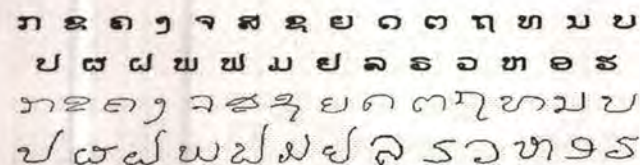 ກ ຂ ຄ ງ ຈ ສ ຊ ຍ ດ ຕ ຖ ທ ນ ບ
ປ ຜ ຝ ພ ຟ ມ ຢ ລ ຣ ວ ຫ ອ ຮ
ກ ຂ ຄ ງ ຈ ສ ຊ ຍ ດ ຕ ຖ ທ ນ ບ
ປ ຜ ຝ ພ ຟ ມ ຢ ລ ຣ ວ ຫ ອ ຮ